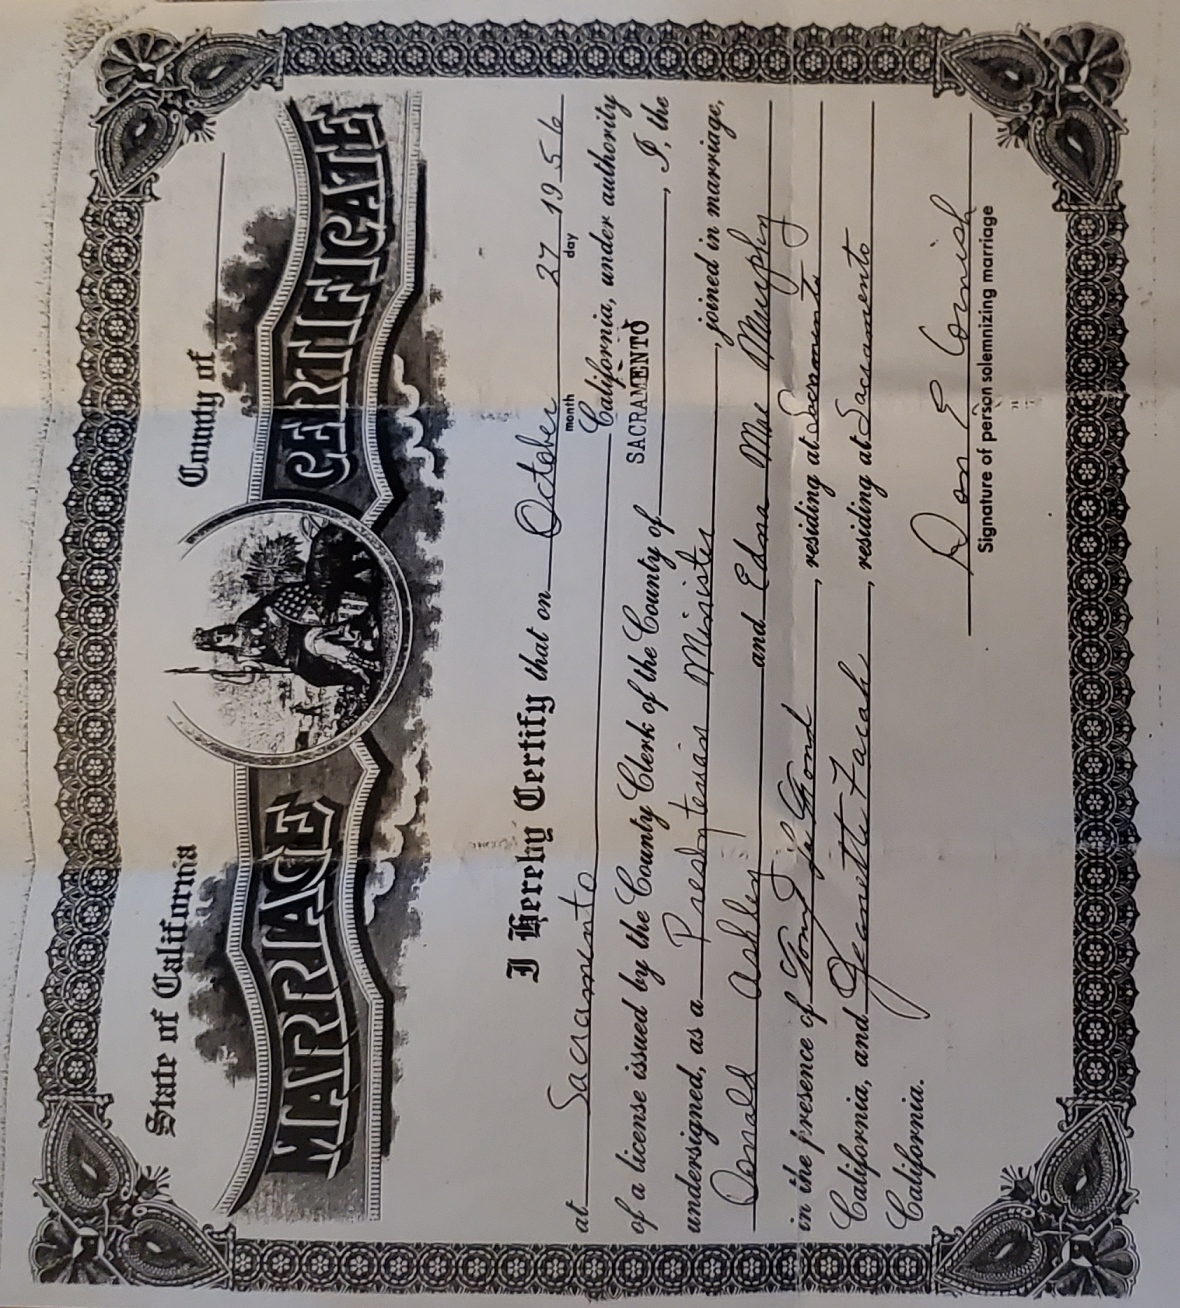 State of California County of
MARRIAGE CERTIFICATE
I Hereby Certify that on October 27 1956
month day
at Sacramento California, under authority
of a license issued by the County Clerk of the County of SACRAMENTO, I, the
undersigned, as a Presbyterian Minister, joined in marriage,
Donald Ashley and Edna Mae Murphy
in the presence of Tony, residing at Sacramento
California, and Jeanette, residing at Sacramento
California.
Don E Cornish
Signature of person solemnizing marriage